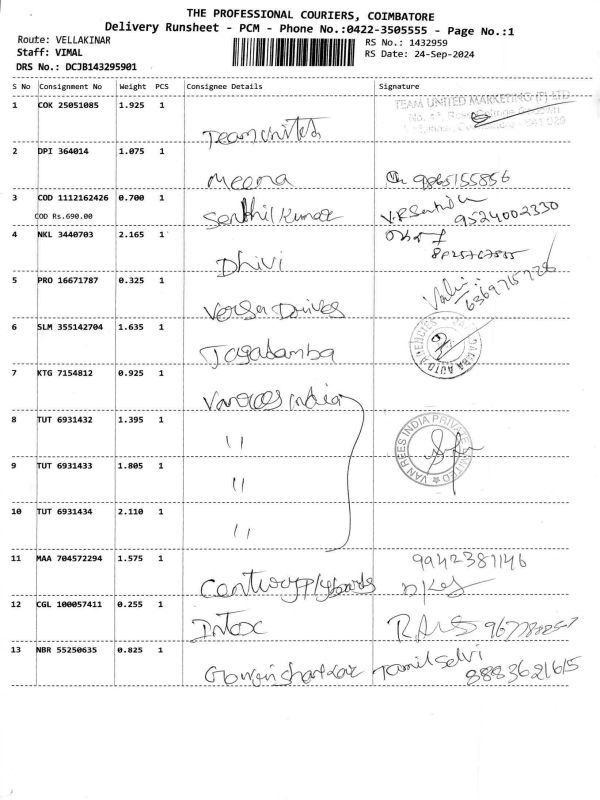 THE PROFESSIONAL COURIERS, COIMBATORE
Delivery Runsheet - PCM - Phone No.:0422-3505555 - Page No.:1
Route: VELLAKINAR
RS No.: 1432959
Staff: VIMAL
RS Date: 24-Sep-2024
DRS No.: DCJB143295901
S No Consignment No Weight PCS Consignee Details Signature
1 COK 25051085 1.925 1 Team United
TEAM UNITED MARKETING (P) LTD
2 DPI 364014 1.075 1 Meena 9865155856
3 COD 1112162426 0.700 1 Senthil Kumar V.R Senthil
COD Rs.690.00 9524002330
4 NKL 3440703 2.165 1 Dhivi
5 PRO 16671787 0.325 1 Versa Drives 6369715728
6 SLM 355142704 1.635 1 Jagadamba
AUTO AGENCIES
7 KTG 7154812 0.925 1 Vanrees india
8 TUT 6931432 1.395 1 11
VAN REES INDIA PRIVATE LIMITED
9 TUT 6931433 1.805 1 11
10 TUT 6931434 2.110 1 11
11 MAA 704572294 1.575 1 Century plyboards 9942381146
12 CGL 100057411 0.255 1 Intox
13 NBR 55250635 0.825 1 Gowrishankar Tamil Selvi
8883621615